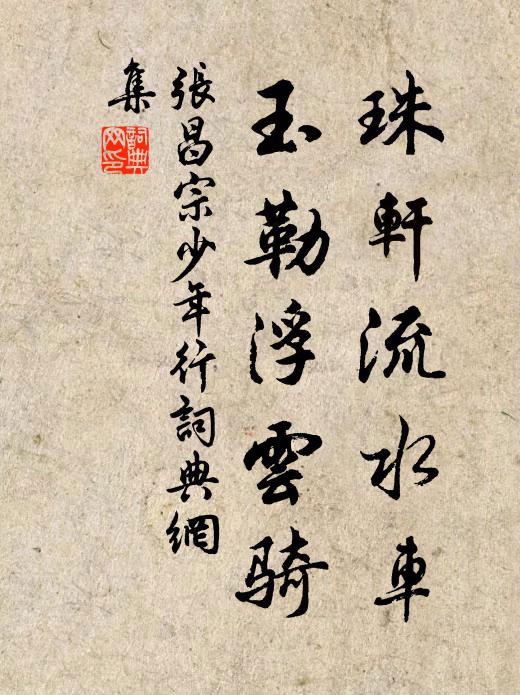 珠軒流水車
玉勒浮雲騎
張昌宗少年行詞典網
集
詞典
网印